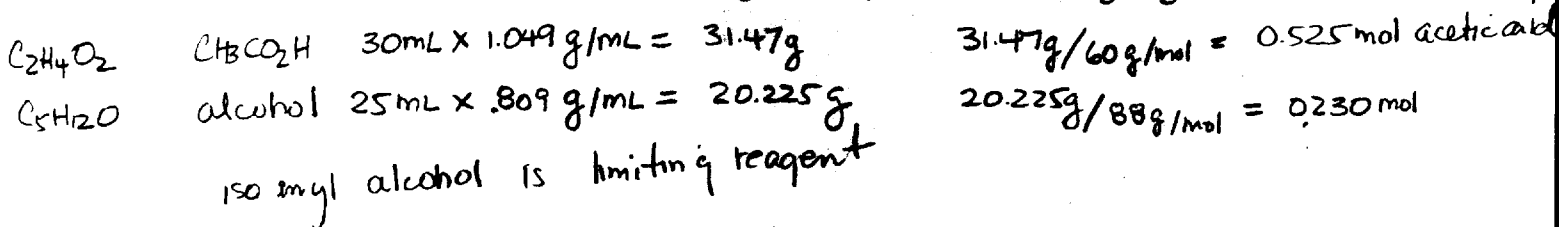 C2H4O2 CH3CO2H 30mL X 1.049 g/mL = 31.47g 31.47g/60g/mol = 0.525 mol acetic acid
C5H12O alcohol 25mL x .809 g/mL = 20.225g 20.225g/88g/mol = 0.230 mol
iso amyl alcohol is limiting reagent